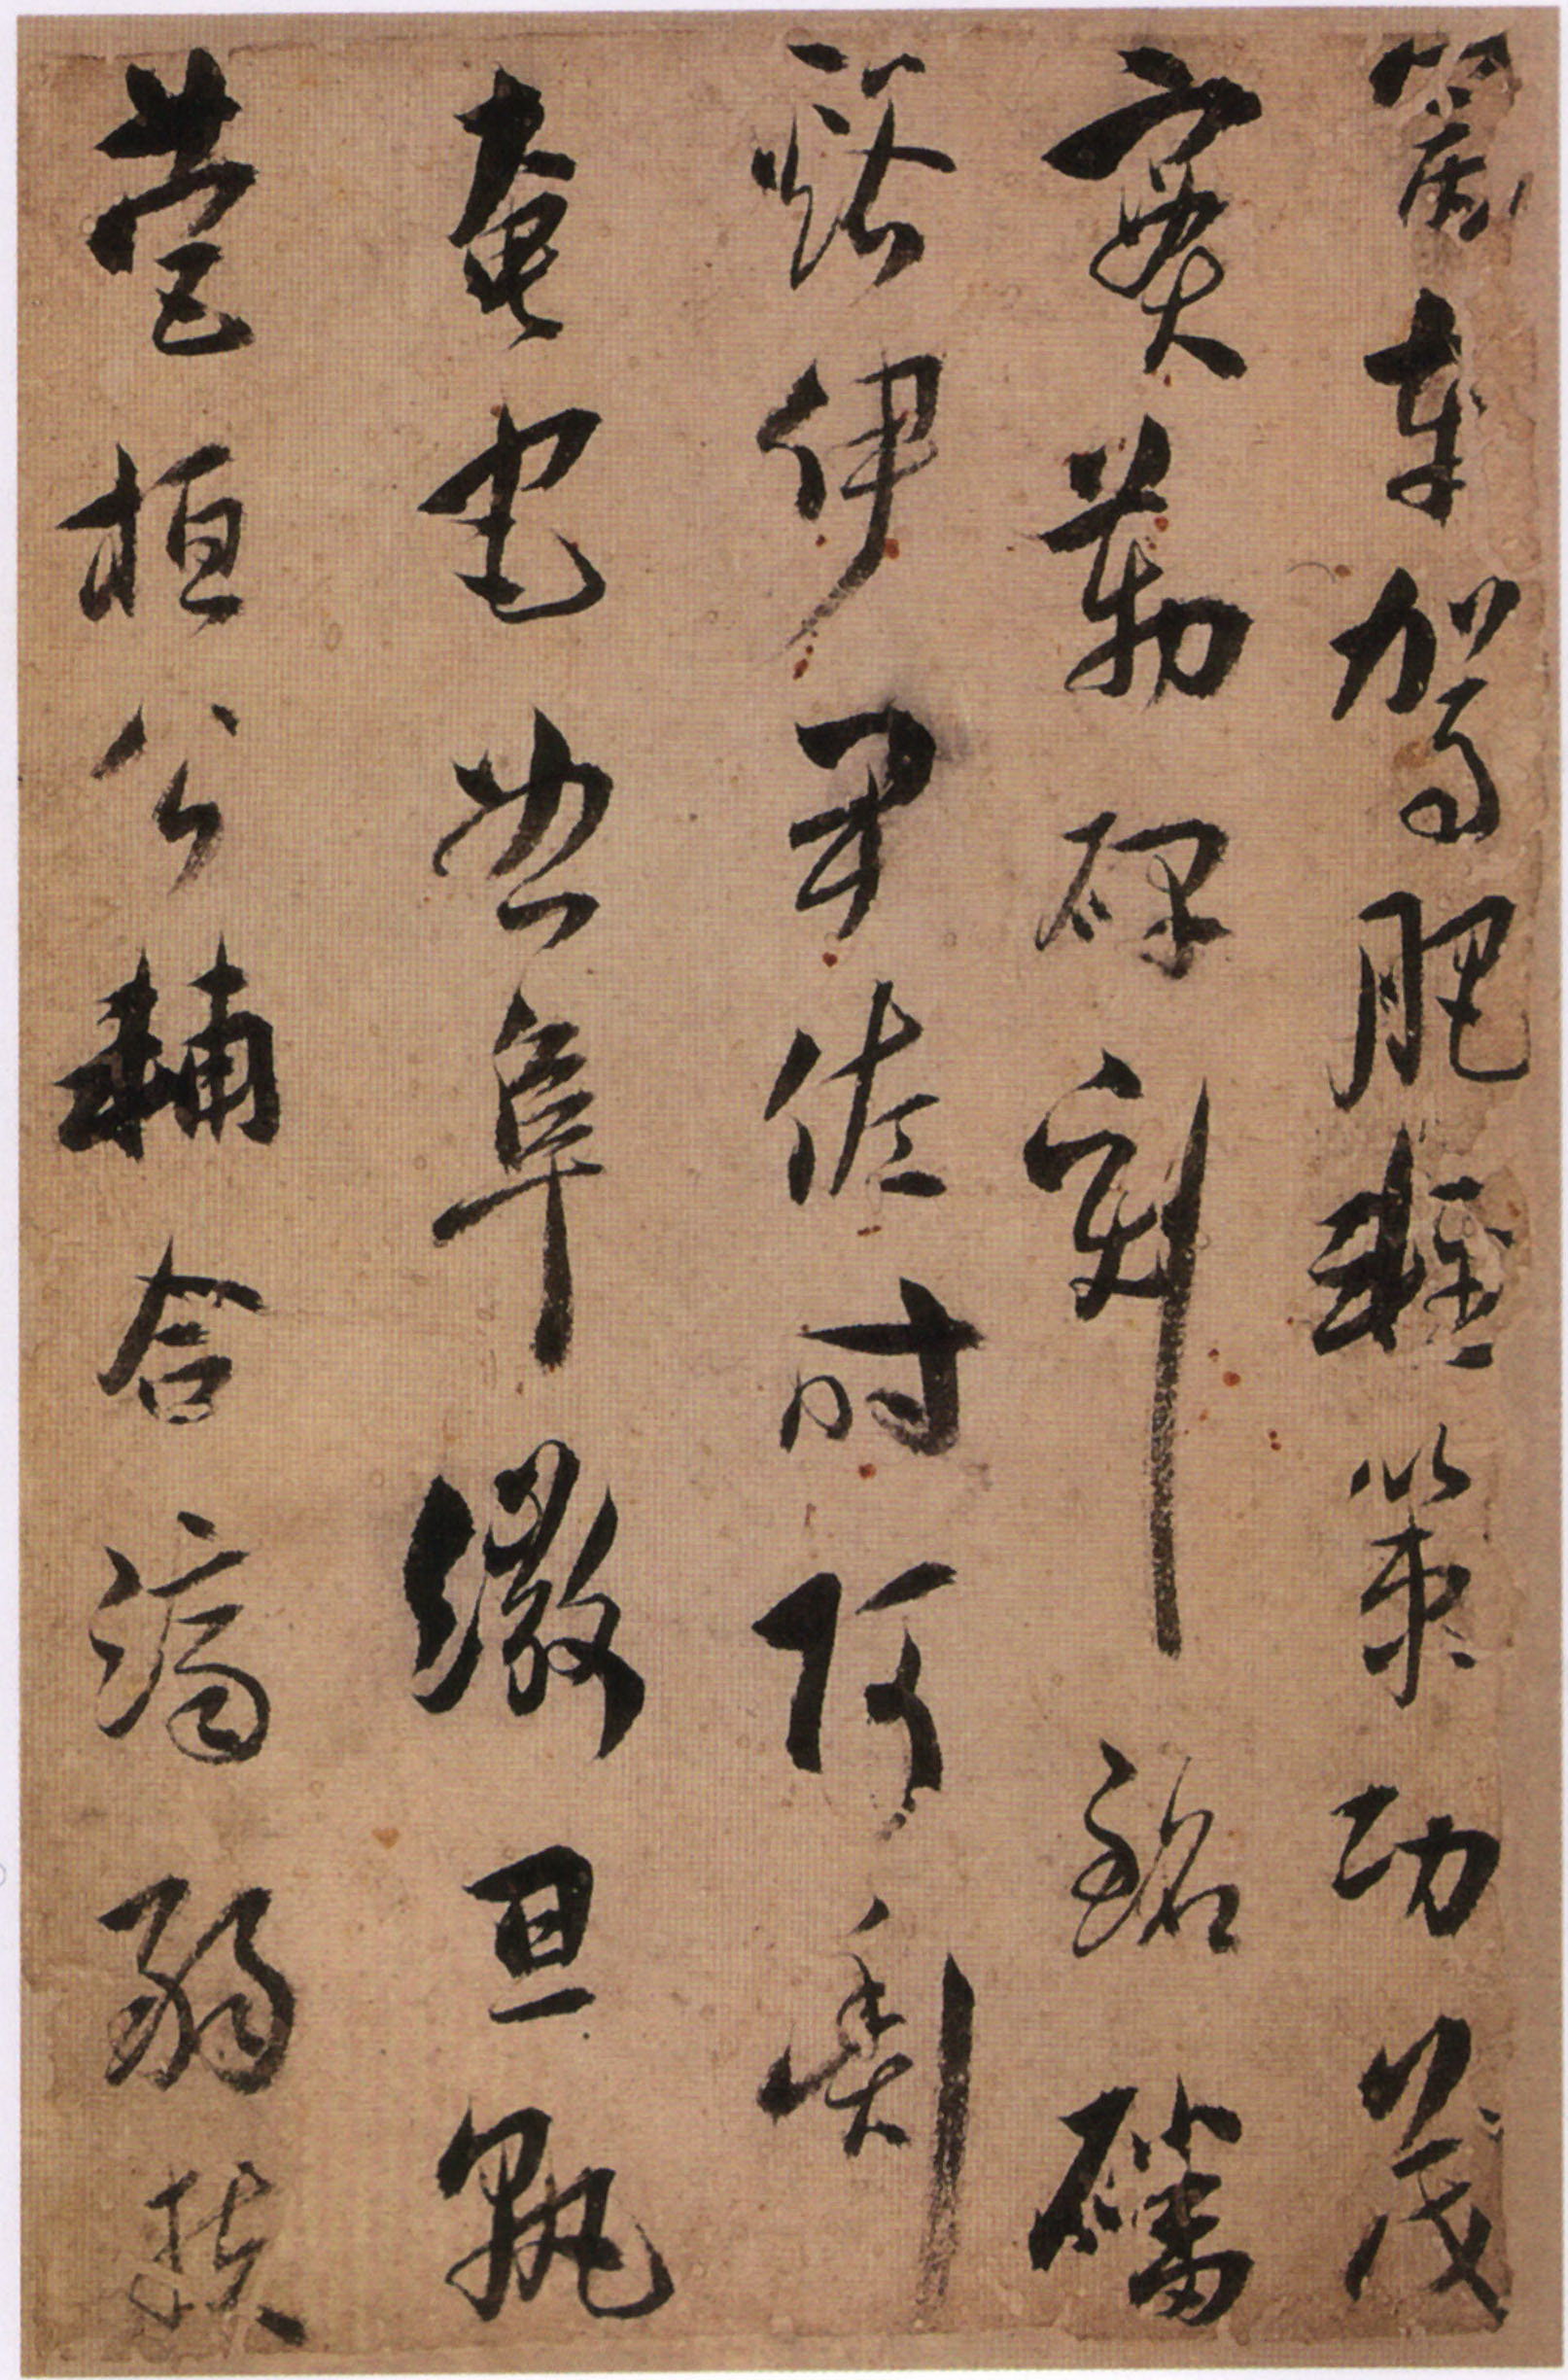 富車駕肥輕策功茂
實勒碑刻銘磻
谿伊尹佐時阿衡
奄宅曲阜微旦孰
營桓公輔合濟弱扶